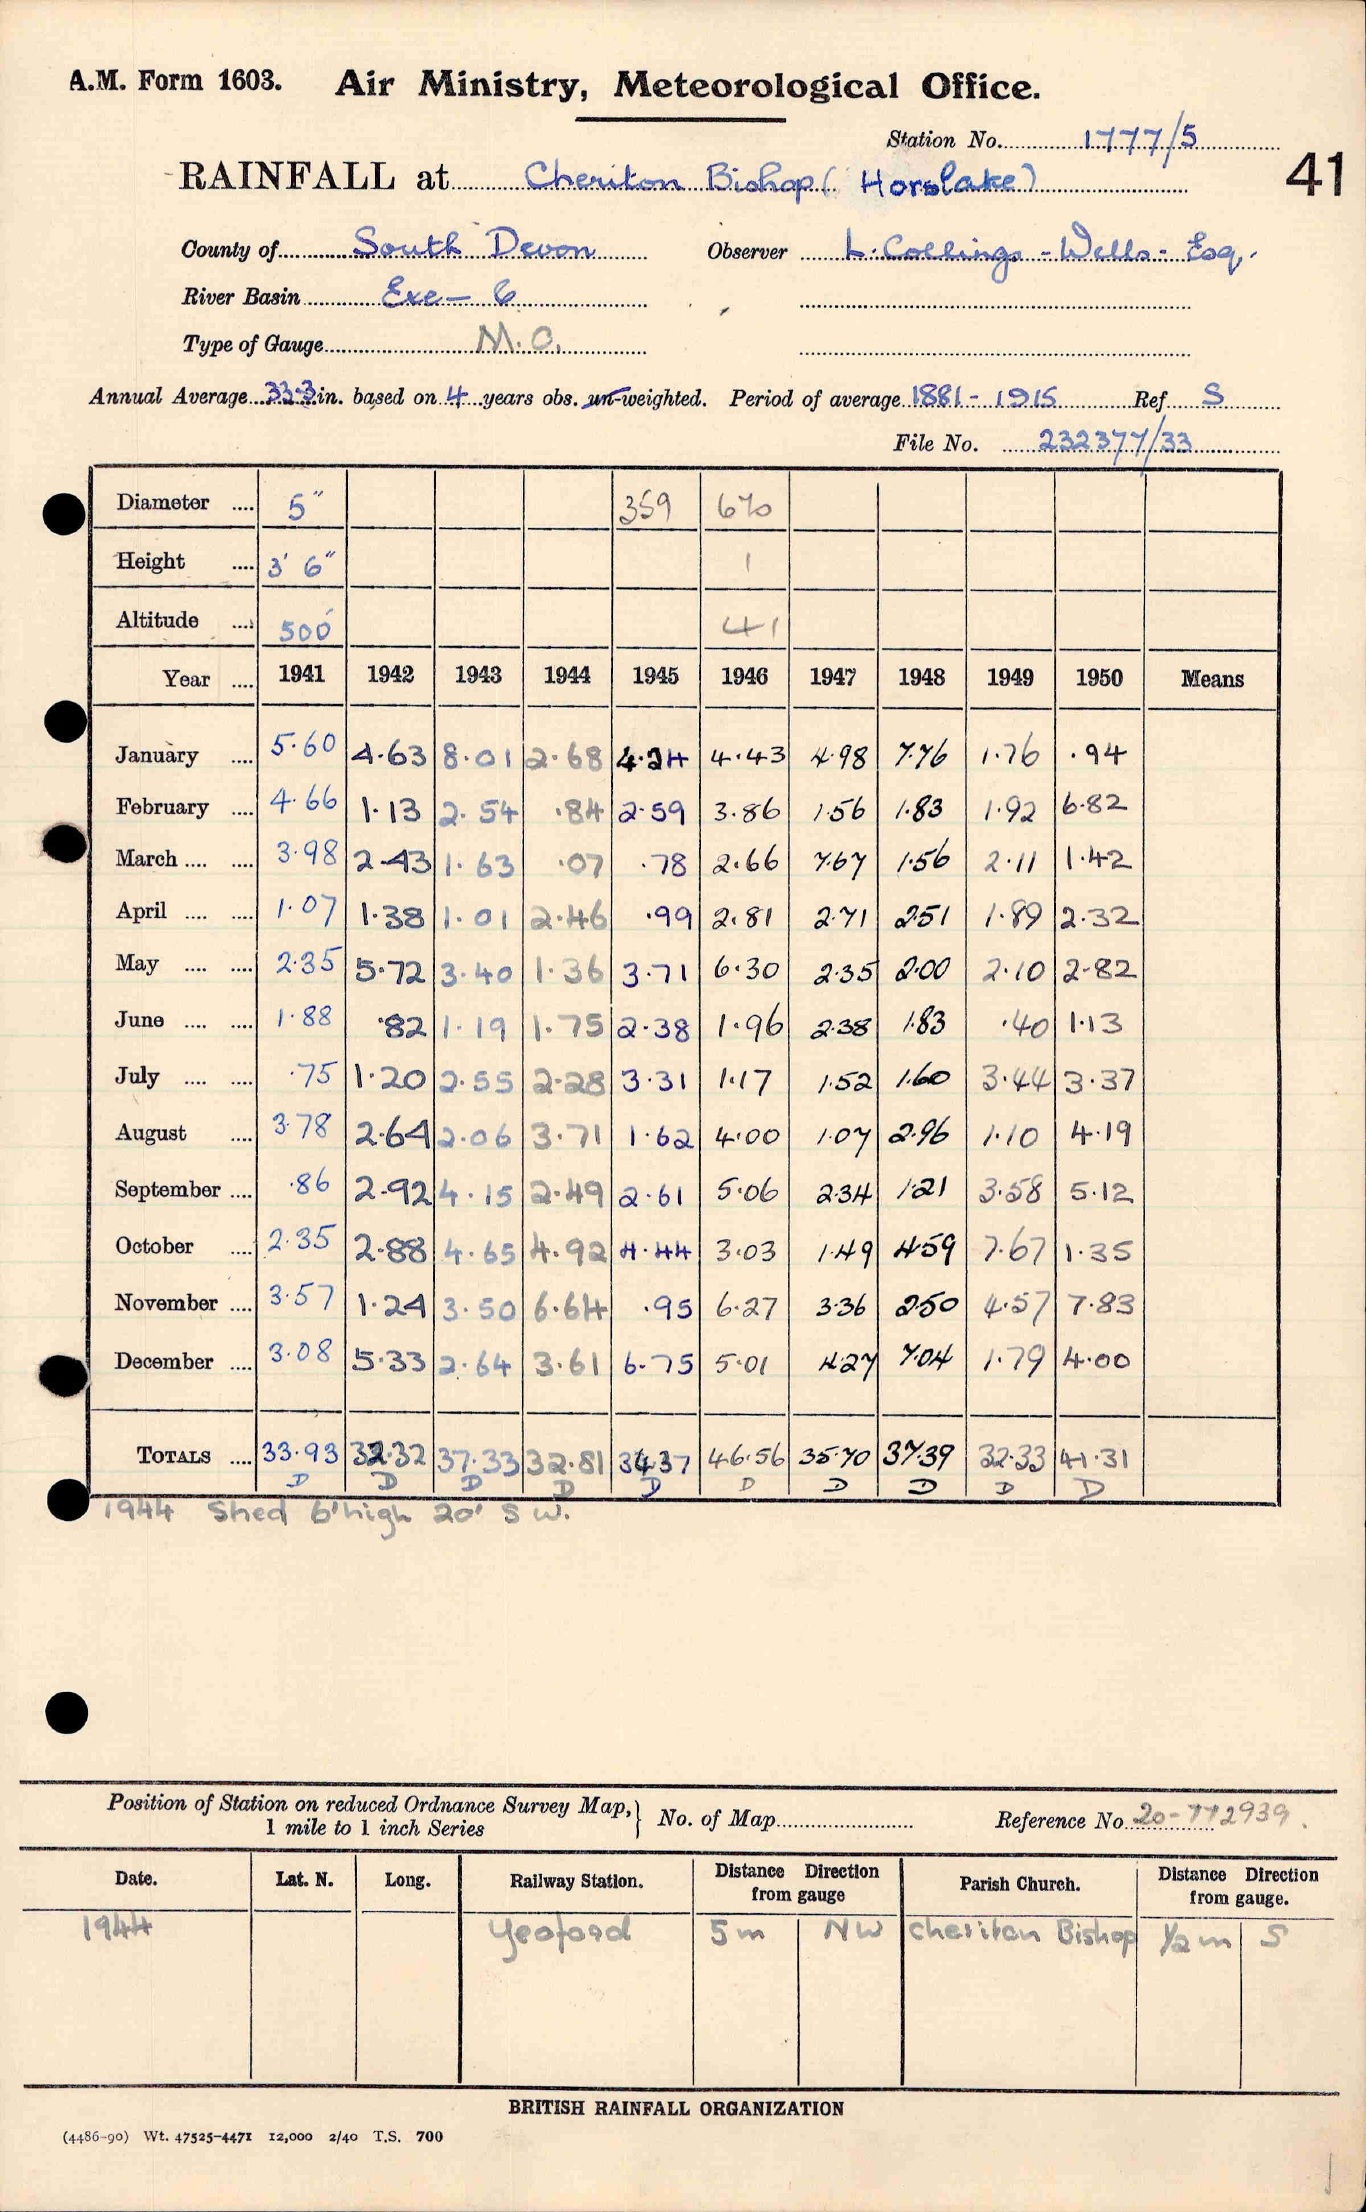 A.M. Form 1603. Air Ministry, Meteorological Office.
Station No. 1777/5
41
RAINFALL at Cheriton Bishop (Horslake)
County of South Devon Observer L. Collings-Wells- Esq.
River Basin Exe - 6
Type of Gauge M.O.
Annual Average 33.3 in. based on 4 years obs. un-weighted. Period of average 1881-1915 Ref S
File No. 232377/33
Diameter .... 5" 359 670
Height .... 3' 6" 1
Altitude .... 500' 41
Year .... 1941 1942 1943 1944 1945 1946 1947 1948 1949 1950 Means
January 5.60 4.63 8.01 2.68 4.24 4.43 4.98 7.76 1.76 .94
February .... 4.66 1.13 2.54 .84 2.59 3.86 1.56 1.83 1.92 6.82
March .... .... 3.98 2.43 1.63 .07 .78 2.66 7.67 1.56 2.11 1.42
April .... .... 1.07 1.38 1.01 2.46 .99 2.81 2.71 2.51 1.89 2.32
May .... .... 2.35 5.72 3.40 1.36 3.71 6.30 2.35 2.00 2.10 2.82
June .... .... 1.88 .82 1.19 1.75 2.38 1.96 2.38 1.83 .40 1.13
July .... .... .75 1.20 2.55 2.28 3.31 1.17 1.52 1.60 3.44 3.37
August .... 3.78 2.64 2.06 3.71 1.62 4.00 1.07 2.96 1.10 4.19
September .... .86 2.92 4.15 2.49 2.61 5.06 2.34 1.21 3.58 5.12
October .... 2.35 2.88 4.65 4.92 4.44 3.03 1.49 4.59 7.67 1.35
November .... 3.57 1.24 3.50 6.64 .95 6.27 3.36 2.50 4.57 7.83
December .... 3.08 5.33 2.64 3.61 6.75 5.01 4.27 7.04 1.79 4.00
TOTALS .... 33.93 32.32 37.33 32.81 34.37 46.56 35.70 37.39 32.33 41.31
D D D D D D D D D D
1944 Shed 6' high 20' S W.
Position of Station on reduced Ordnance Survey Map,} No. of Map Reference No. 20-772939.
1 mile to 1 inch Series
Date. Lat. N. Long. Railway Station. Distance Direction from gauge Parish Church. Distance Direction from gauge.
1944 Yeoford 5m NW Cheriton Bishop 1/2 m S
BRITISH RAINFALL ORGANIZATION
(4486-90) Wt. 47525-4471 12,000 2/40 T.S. 700